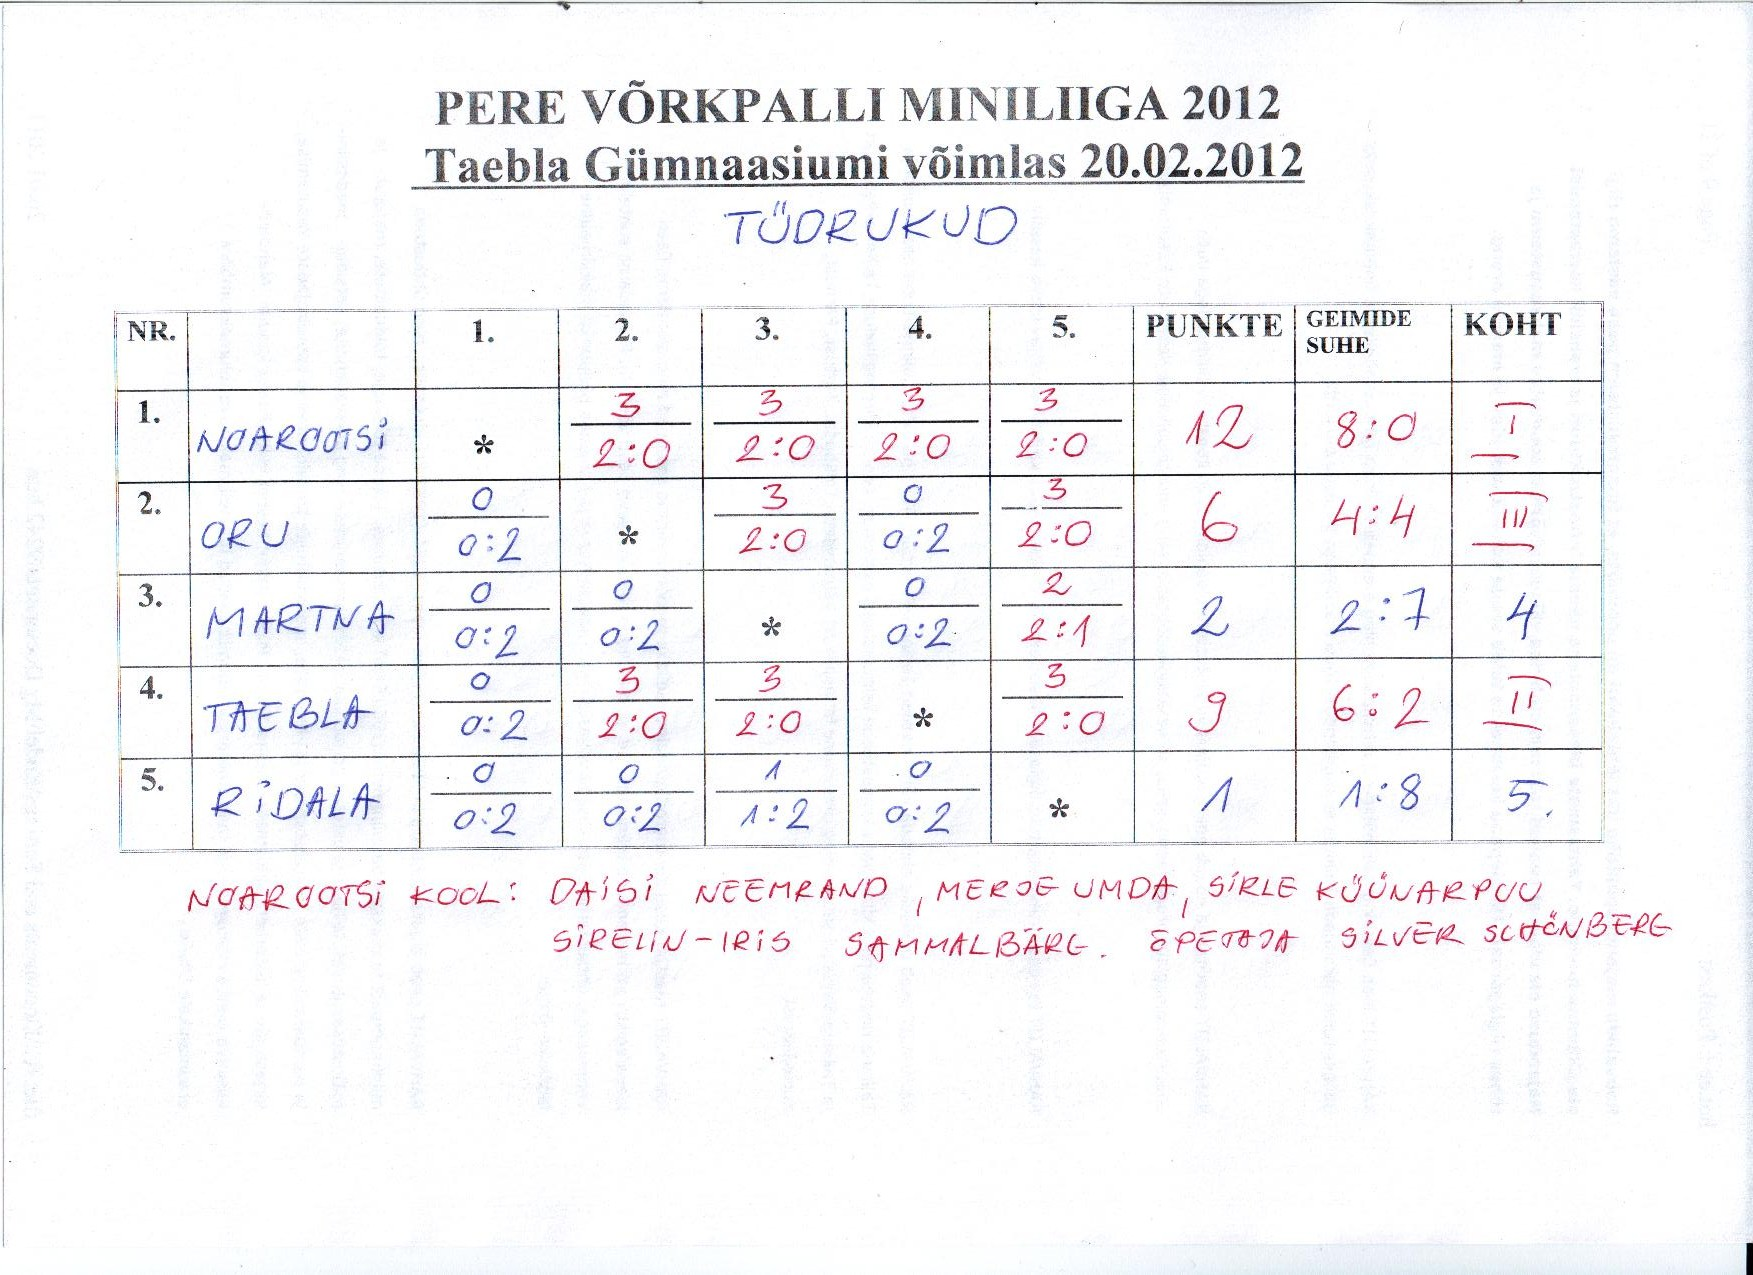 PERE VÕRKPALLI MINILIIGA 2012
Taebla Gümnaasiumi võimlas 20.02.2012
TÜDRUKUD
NR. 1. 2. 3. 4. 5. PUNKTE GEIMIDE SUHE KOHT
1. NOAROOTSI * 3 2:0 3 2:0 3 2:0 3 2:0 12 8:0 I
2. ORU 0 0:2 * 3 2:0 0 0:2 3 2:0 6 4:4 III
3. MARTNA 0 0:2 0 0:2 * 0 0:2 2 2:1 2 2:7 4
4. TAEBLA 0 0:2 3 2:0 3 2:0 * 3 2:0 9 6:2 II
5. RIDALA 0 0:2 0 0:2 1 1:2 0 0:2 * 1 1:8 5.
NOAROOTSI KOOL: DAISI NEEMRAND, MERJE UMDA, SIRLE KÜÜNARPUU
SIRELIN-IRIS SAMMALBÄRG. ÕPETAJA SILVER SCHÖNBERG